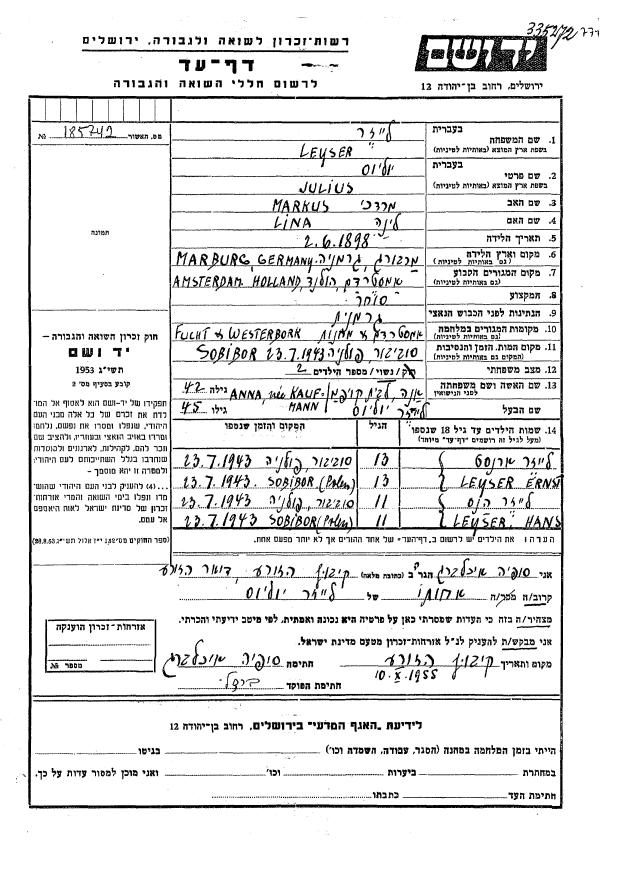 335272 771
רשות-זכרון לשואה ולגבורה, ירושלים
יד ושם
דף-עד
לרשום חללי השואה והגבורה
ירושלים, רחוב בן-יהודה 12
מס. האשור № 185742
תמונה
1. שם המשפחה
בעברית לייזר
בשפת ארץ המוצא (באותיות לטיניות) LEYSER
2. שם פרטי
בעברית יוליוס
בשפת ארץ המוצא (באותיות לטיניות) JULIUS
3. שם האב מרדכי MARKUS
4. שם האם לינה LINA
5. תאריך הלידה 2.6.1898
6. מקום וארץ הלידה
(גם באותיות לטיניות) מרבורג, גרמניה. MARBURG, GERMANY
7. מקום המגורים הקבוע
(גם באותיות לטיניות) אמסטרדם, הולנד, AMSTERDAM HOLLAND
8. המקצוע סוחר
9. הנתינות לפני הכבוש הנאצי גרמנית
10. מקומות המגורים במלחמה
(גם באותיות לטיניות) WESTERBORK
11. מקום המות, הזמן והנסיבות
(המקום גם באותיות לטיניות) סוביבור, פולניה 23.7.1943 SOBIBOR
12. מצב משפחתי רק/נשוי/ מספר הילדים 2
13. שם האשה ושם משפחתה
לפני הנישואין אנה, לבית קויפמן ANNA, née KAUF-MANN גילה 42
שם הבעל לייזר יוליוס גילו 45
14. שמות הילדים עד גיל 18 שנספו
(מעל לגיל זה רושמים "דף-עד" מיוחד)
הגיל
המקום והזמן שנספו
לייזר ארנסט 13 סוביבור, פולניה 23.7.1943
LEYSER ERNST 13 SOBIBOR (Polen) 23.7.1943
לייזר הנס 11 סוביבור, פולניה 23.7.1943
LEYSER HANS 11 SOBIBOR (Polen) 23.7.1943
הערה: את הילדים יש לרשום ב"דף-עד" של אחד ההורים אך לא יותר מפעם אחת.
חוק זכרון השואה והגבורה —
יד ושם
תשי"ג 1953
קובע בסעיף מס' 2
תפקידו של יד-ושם הוא לאסוף אל המו-
לדת את זכרם של כל אלה מבני העם
היהודי, שנפלו ומסרו את נפשם, נלחמו
ומרדו באויב הנאצי ובעוזריו, ולהציב שם
וזכר להם, לקהילות, לארגונים ולמוסדות
שנחרבו בגלל השתייכותם לעם היהודי;
ולמטרה זו יהא מוסמך —
...(4) להעניק לבני העם היהודי שהוש-
מדו ונפלו בימי השואה והמרי אזרחות-
זכרון של מדינת ישראל לאות היאספם
אל עמם.
אני סופיה הגר ב (כתובת מלאה) קיבוץ הזורע, דואר הזורע
קרוב/ה אחותו של לייזר יוליוס
מצהיר/ה בזה כי העדות שמסרתי כאן על פרטיה היא נכונה ואמתית, לפי מיטב ידיעתי והכרתי.
אני מבקש/ת להעניק לנ"ל אזרחות-זכרון מטעם מדינת ישראל.
מקום ותאריך קיבוץ הזורע 10.X.1955 חתימה סופיה
חתימת הפוקד
אזרחות-זכרון הוענקה
מספר №
לידיעת "האגף המדעי" בירושלים, רחוב בן-יהודה 12
הייתי בזמן המלחמה במחנה (הסגר, עבודה, השמדה וכו') בגיטו
במחתרת ביערות וכו' ואני מוכן למסור עדות על כך.
חתימת העד כתבתו